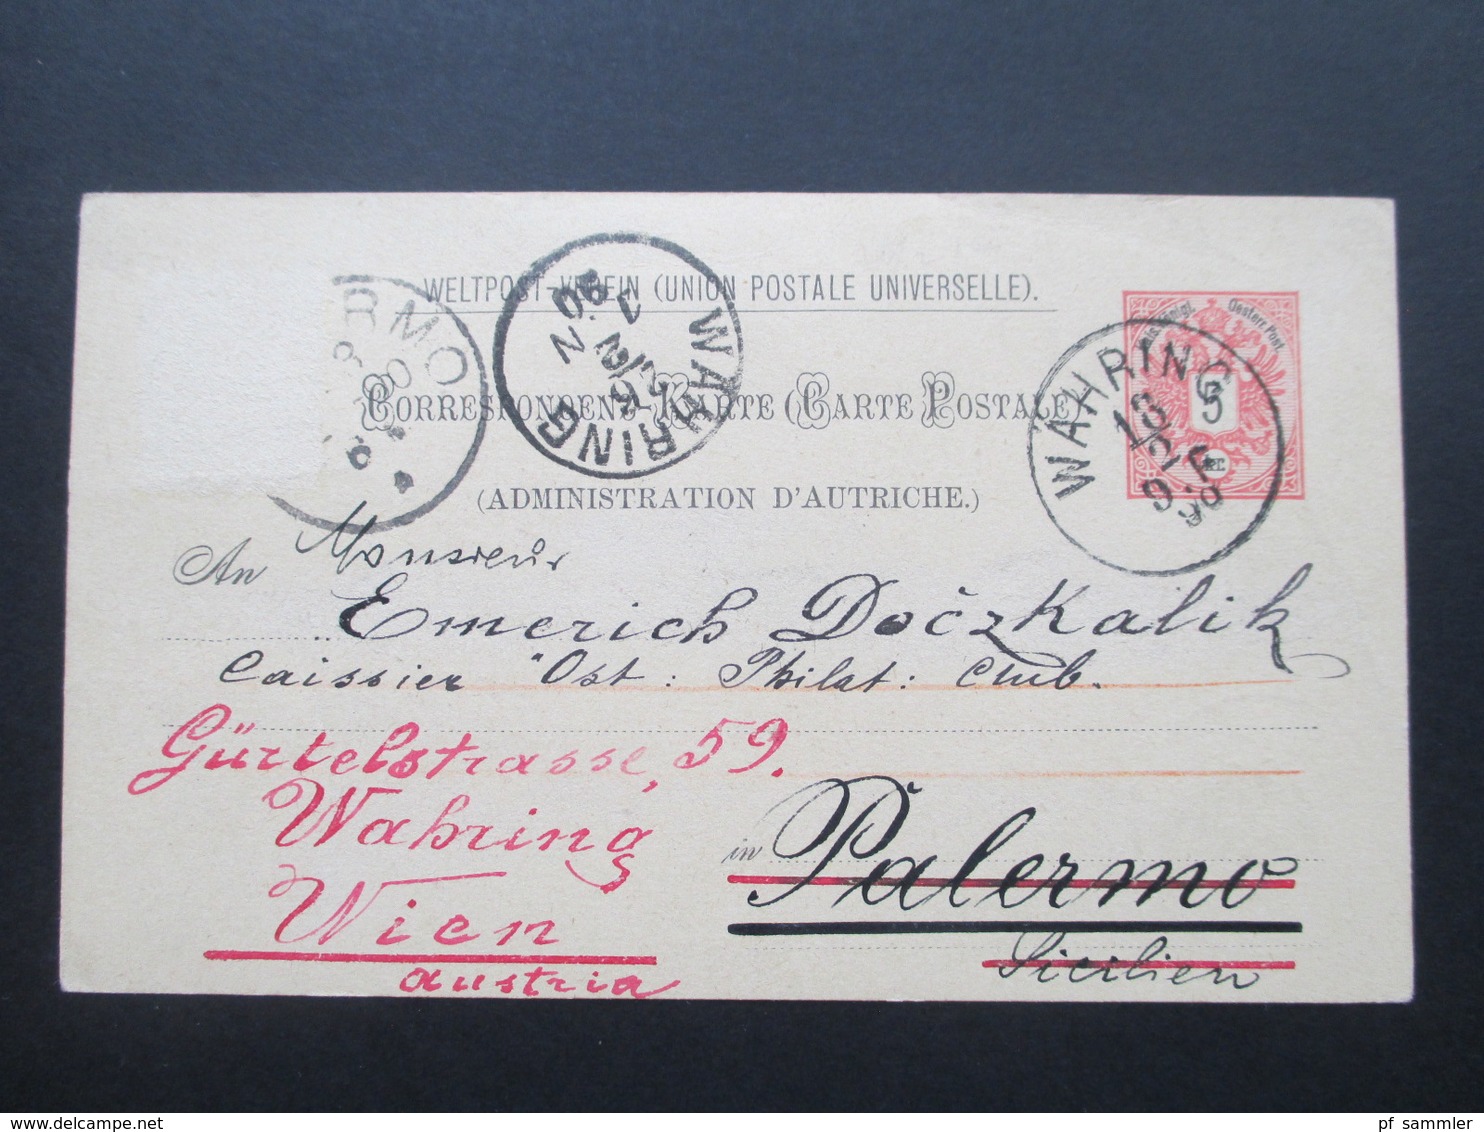 WELTPOST-VEREIN (UNION POSTALE UNIVERSELLE).
CORRESPONDENZ-KARTE (CARTE POSTALE)
(ADMINISTRATION D'AUTRICHE.)
RMO
WÄHRING
90
WÄHRING
18
90
Oesterr. Post.
5
An Monsieur
Emerich Dočzkalik
Caissier "Ost: Philat: Club.
Gürtelstrasse, 59.
Wahring
Wien
austria
in Palermo
Sicilien
delcampe.net
pf_sammler